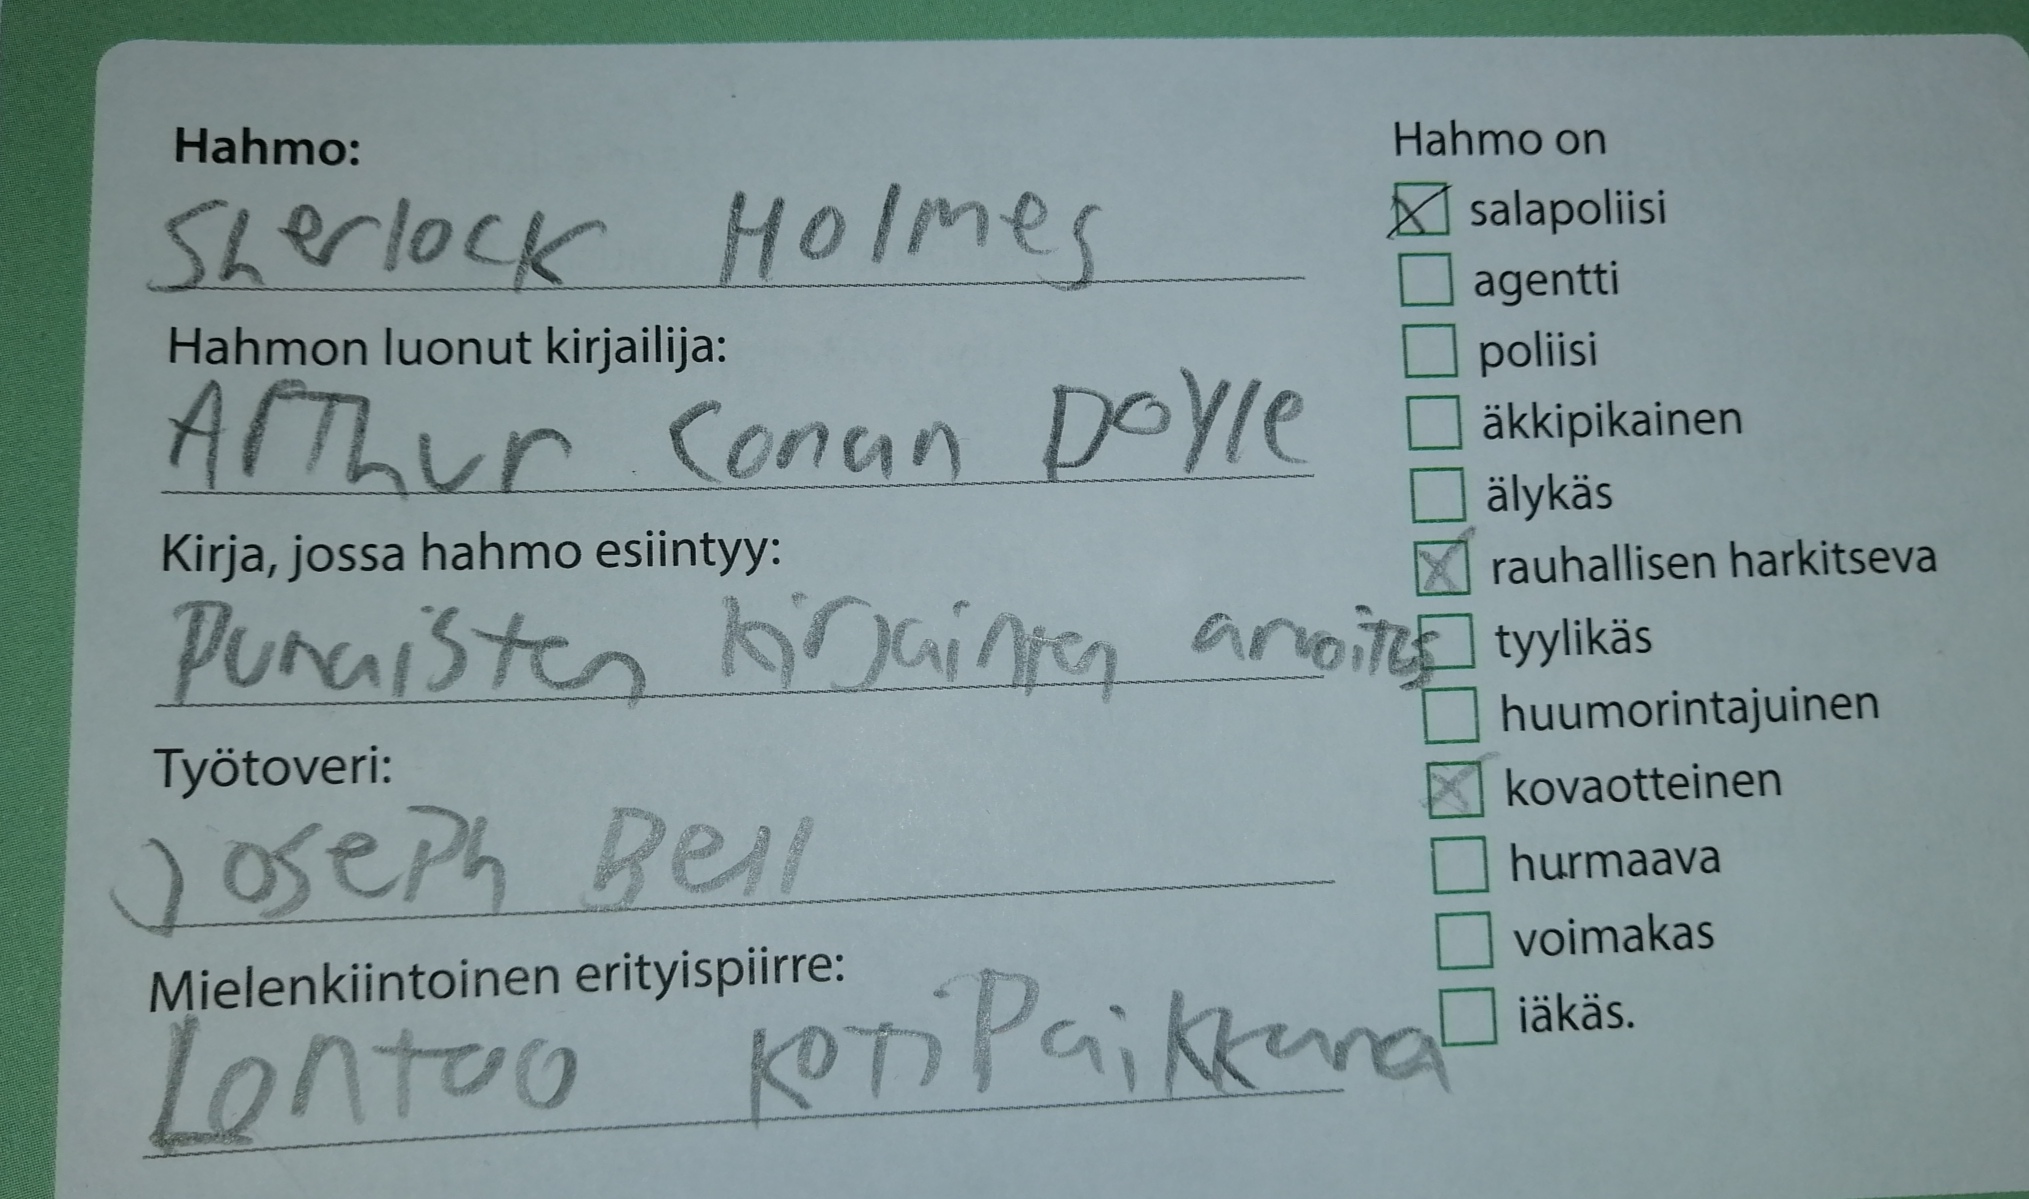 Hahmo:
Sherlock Holmes
Hahmon luonut kirjailija:
Arthur Conan Doyle
Kirja, jossa hahmo esiintyy:
Punaisten kirjainten arvoitus
Työtoveri:
Joseph Bell
Mielenkiintoinen erityispiirre:
Lontoo kotipaikkana
Hahmo on
salapoliisi
agentti
poliisi
äkkipikainen
älykäs
rauhallisen harkitseva
tyylikäs
huumorintajuinen
kovaotteinen
hurmaava
voimakas
iäkäs.